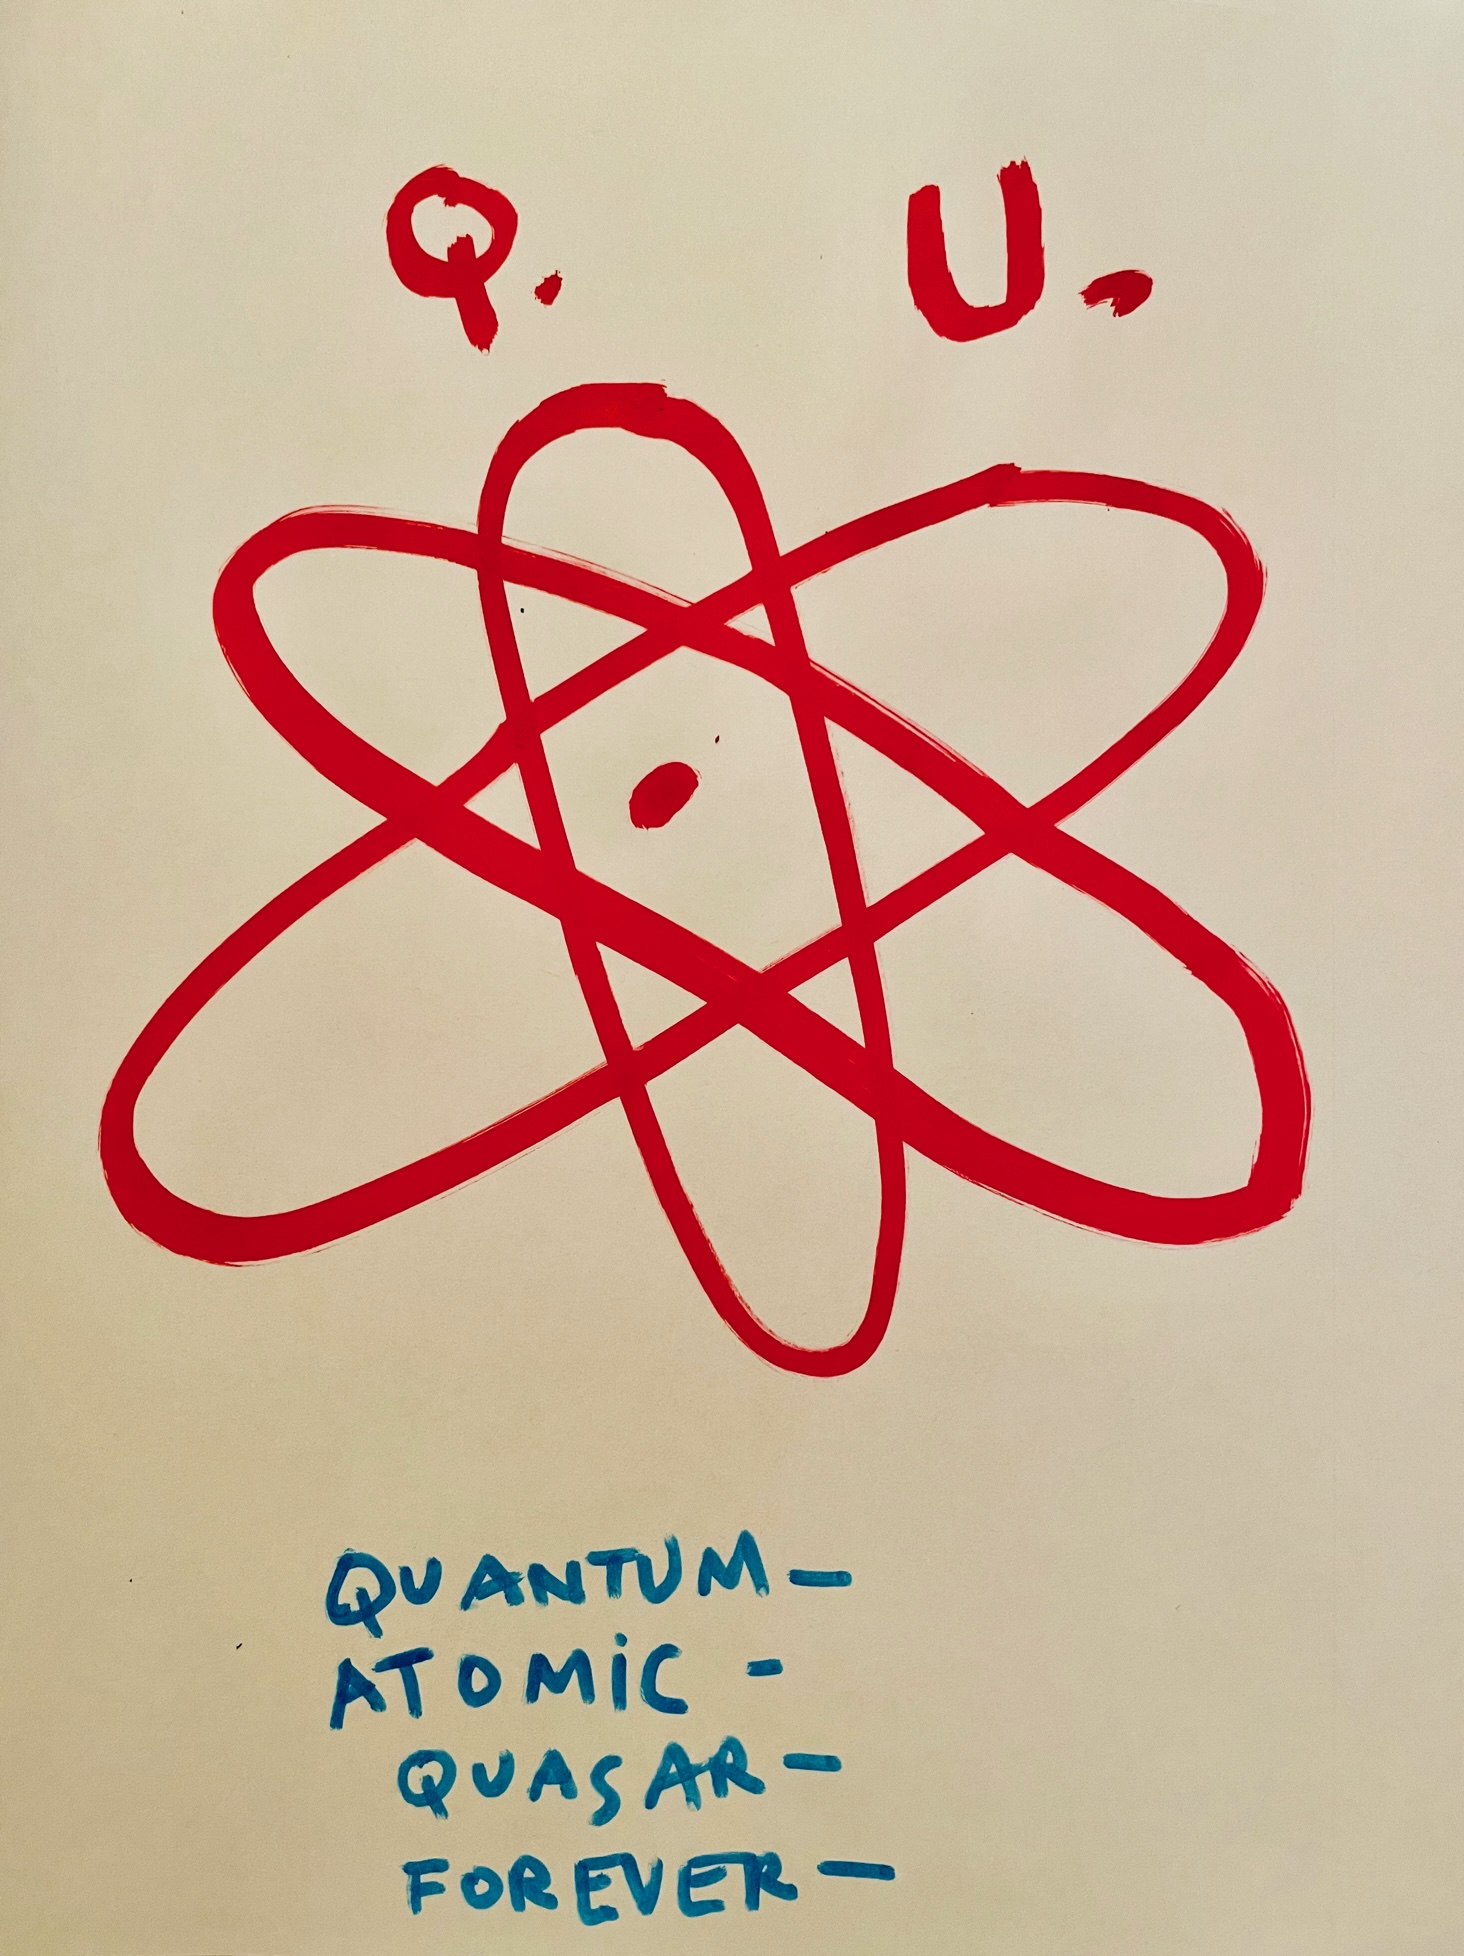 Q. U.
QUANTUM—
ATOMiC -
QUASAR—
FOREVER—